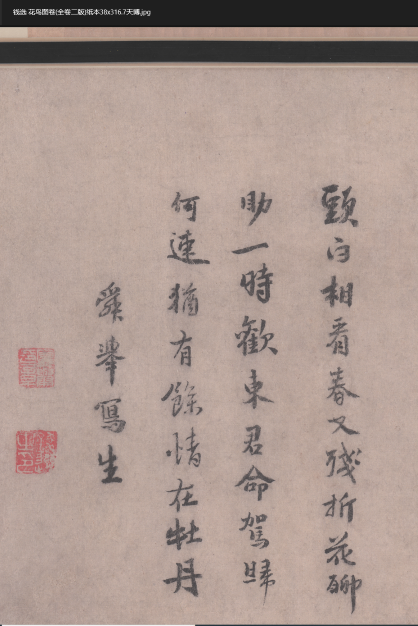 钱选 花鸟图卷(全卷二版)纸本38x316.7天博.jpg
頭白相看春又殘折花聊
助一時歡東君命駕歸
何速猶有餘情在牡丹
舜舉寫生